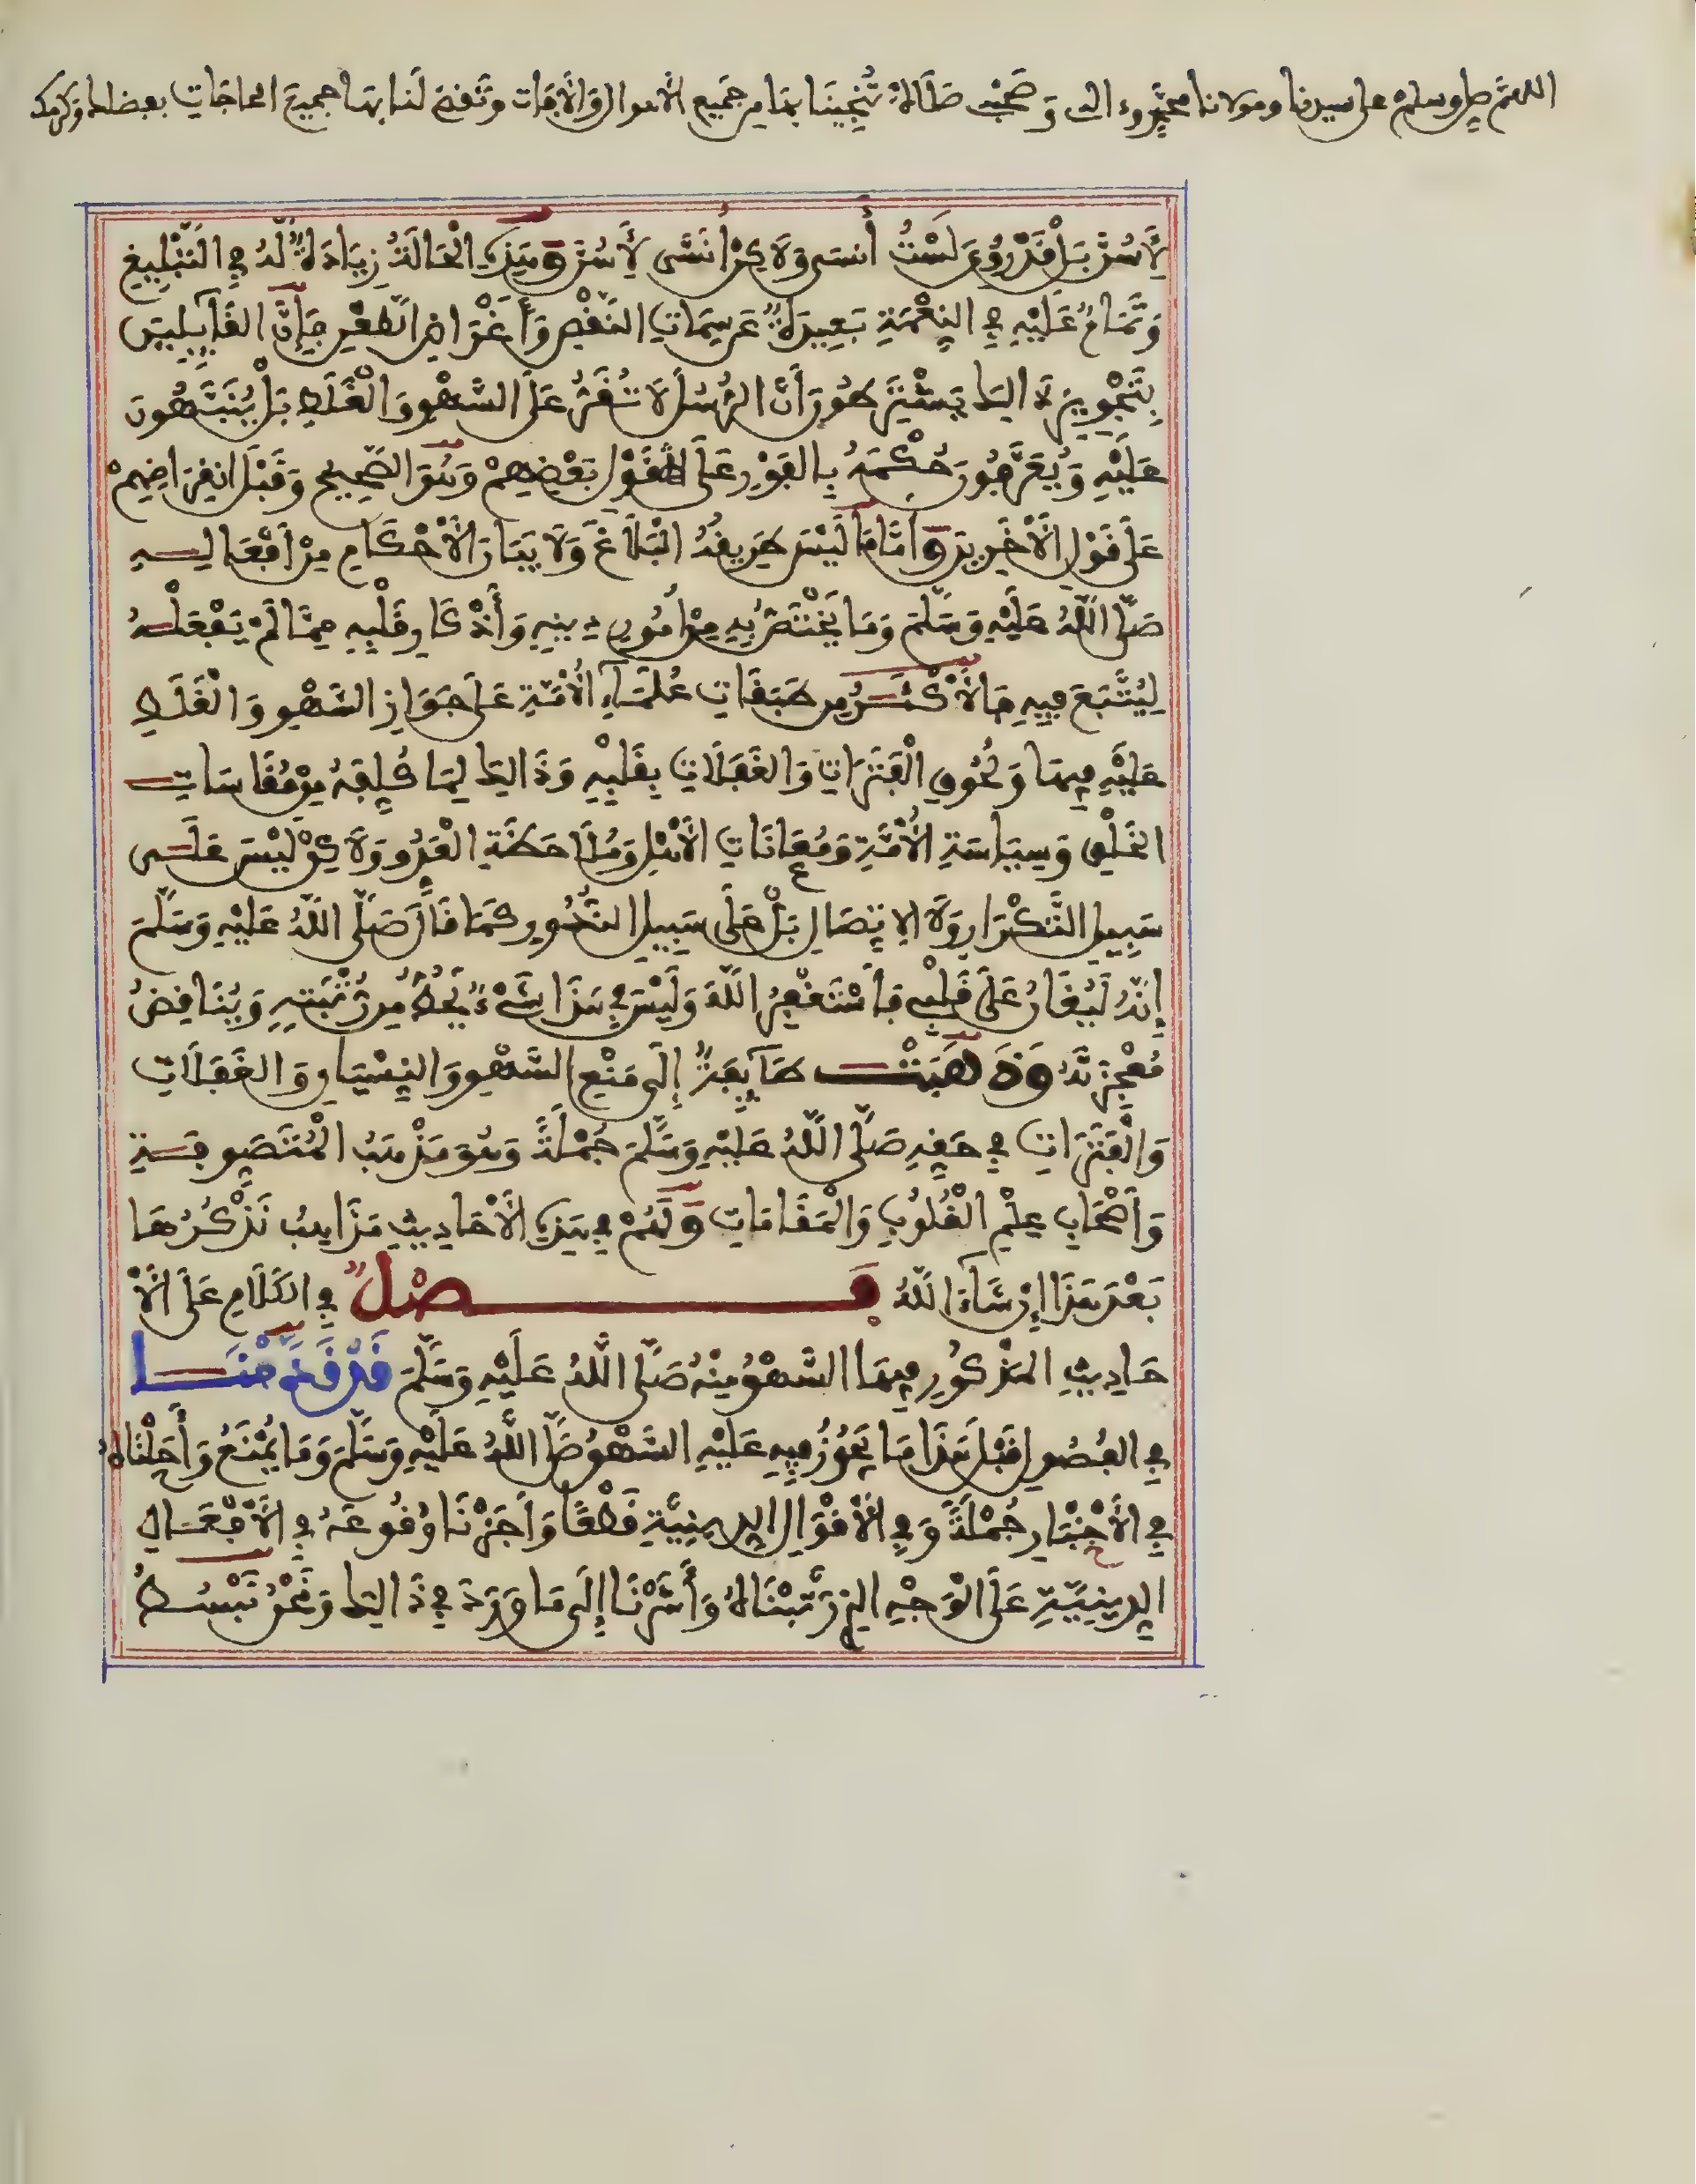 اللهم صل وسلم على سيدنا ومولانا محمد وءاله وصحبه صلاة تنجينا بها من جميع الأهوال والآفات وتقضي لنا بها جميع الحاجات بفضلك وكرمك
لِأَسُنَّ بَلْ قَدْ رُوِيَ لَسْتُ أَنسَى وَلَاكِنْ أُنَسَّى لِأَسُنَّ وَهَذِهِ الْحَالَةُ زِيَادَةٌ لَهُ فِي التَّبْلِيغِ
وَتَمَامٌ عَلَيْهِ فِي النِّعْمَةِ بَعِيدَةٌ عَن سِمَاتِ النَّقْصِ وَأَغْرَاضِ الطَّعْنِ فَإِنَّ الْقَآئِلِينَ
بِتَجْوِيزِ ذَالِكَ يَشْتَرِطُونَ أَنَّ الرُّسُلَ لَا تُقَرُّ عَلَى السَّهْوِ وَالْغَلَطِ بَلْ يُنَبَّهُونَ
عَلَيْهِ وَيُعَرَّفُونَ حُكْمَهُ بِالْفَوْرِ عَلَى قَوْلِ بَعْضِهِمْ وَهُوَ الصَّحِيحُ وَقَبْلَ انقِرَاضِهِمْ
عَلَى قَوْلِ الْأَخَرِينَ وَأَمَّا مَا لَيْسَ طَرِيقُهُ الْبَلَاغَ وَلَا بَيَانَ الْأَحْكَامِ مِنْ أَفْعَالِهِ
صَلَّى اللَّهُ عَلَيْهِ وَسَلَّمَ وَمَا يَخْتَصُّ بِهِ مِنْ أُمُورِ دِينِهِ وَأَذْكَارِ قَلْبِهِ مِمَّا لَمْ يَفْعَلْهُ
لِيُتَّبَعَ فِيهِ فَالْأَكْثَرُ مِن طَبَقَاتِ عُلَمَآءِ الْأُمَّةِ عَلَى جَوَازِ السَّهْوِ وَالْغَلَطِ
عَلَيْهِ فِيهَا وَلُحُوقِ الْفَتَرَاتِ وَالْغَفَلَاتِ بِقَلْبِهِ وَذَالِكَ لِمَا كُلِّفَهُ مِنْ مُقَاسَاتِ
الْخَلْقِ وَسِيَاسَةِ الْأُمَّةِ وَمُعَانَاتِ الْأَهْلِ وَمُلَاحَظَةِ الْعَدُوِّ وَلَاكِنْ لَيْسَ عَلَى
سَبِيلِ التَّكْرَارِ وَلَا الِاتِّصَالِ بَلْ عَلَى سَبِيلِ النُّدُورِ كَمَا قَالَ صَلَّى اللَّهُ عَلَيْهِ وَسَلَّمَ
إِنَّهُ لَيُغَانُ عَلَى قَلْبِي فَأَسْتَغْفِرُ اللَّهَ وَلَيْسَ فِي هَذَا شَيْءٌ يَحُطُّ مِن رُّتْبَتِهِ وَيُنَاقِضُ
مُعْجِزَتَهُ وَذَهَبَتْ طَآئِفَةٌ إِلَى مَنْعِ السَّهْوِ وَالنِّسْيَانِ وَالْغَفَلَاتِ
وَالْفَتَرَاتِ فِي حَقِّهِ صَلَّى اللَّهُ عَلَيْهِ وَسَلَّمَ جُمْلَةً وَهُوَ مَذْهَبُ الْمُتَصَوِّفَةِ
وَأَصْحَابِ عِلْمِ الْقُلُوبِ وَالْمَقَامَاتِ وَلَهُمْ فِي هَذِهِ الْأَحَادِيثِ مَذَاهِبُ نَذْكُرُهَا
بَعْدَ هَذَا إِن شَآءَ اللَّهُ فَصْلٌ فِي الْكَلَامِ عَلَى الْأَ
حَادِيثِ الْمَذْكُورِ فِيهَا السَّهْوُ مِنْهُ صَلَّى اللَّهُ عَلَيْهِ وَسَلَّمَ قَدْ قَدَّمْنَا
فِي الْفُصُولِ قَبْلَ هَذَا مَا يَجُوزُ فِيهِ عَلَيْهِ السَّهْوُ صَلَّى اللَّهُ عَلَيْهِ وَسَلَّمَ وَمَا يَمْتَنِعُ وَأَحَلْنَاهُ
فِي الْأَخْبَارِ جُمْلَةً وَفِي الْأَقْوَالِ الدِّينِيَّةِ قَطْعًا وَأَجَزْنَا وُقُوعَهُ فِي الْأَفْعَالِ
الدِّينِيَّةِ عَلَى الْوَجْهِ الذِي رَتَّبْنَاهُ وَأَشَرْنَا إِلَى مَا وَرَدَ فِي ذَالِكَ وَنَحْنُ نَبْسُطُ